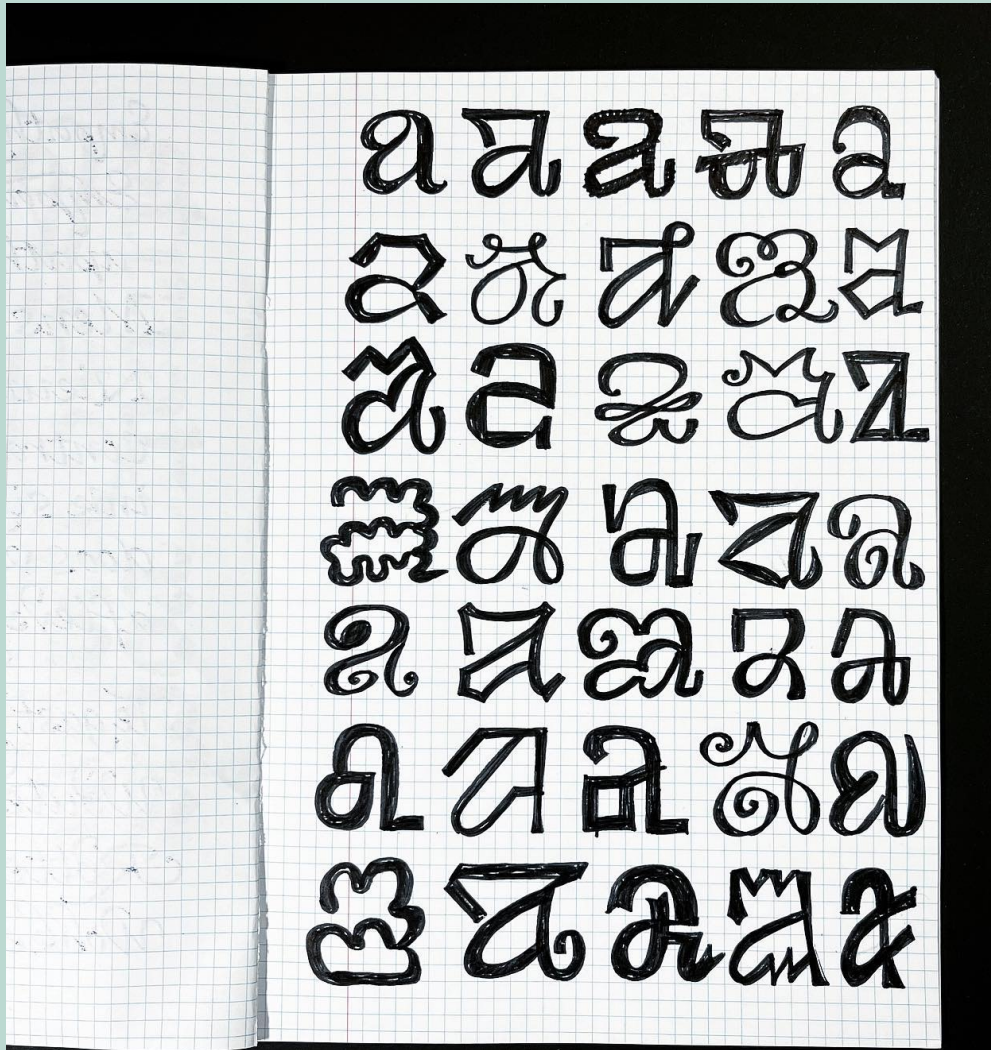 a a a a a
a a a a a
a a a a a
a a a a a
a a a a a
a a a a a
a a a a a